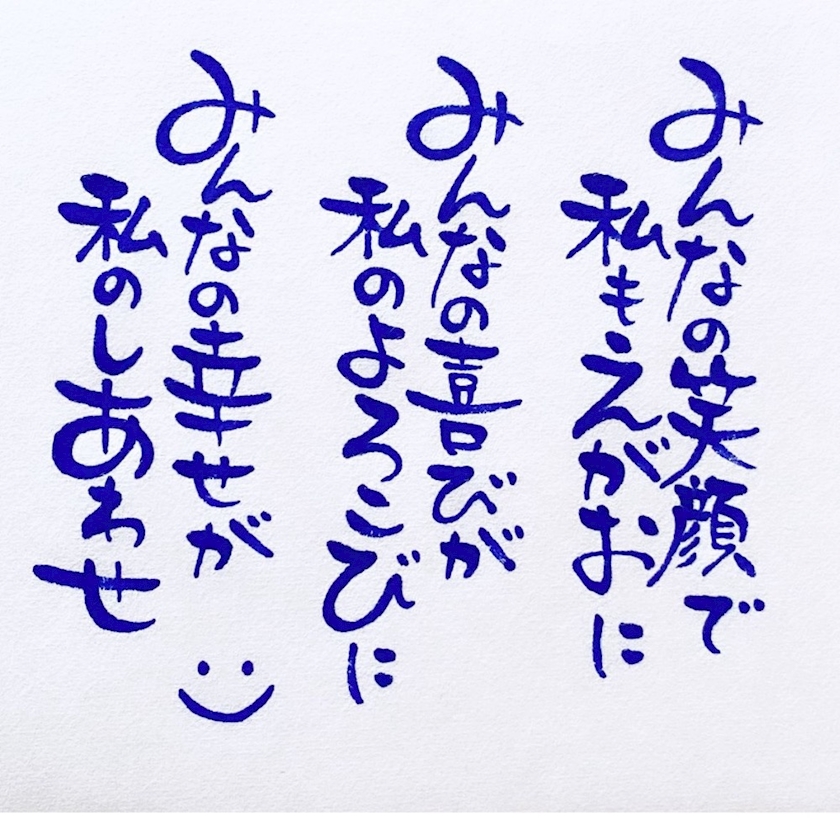 みんなの笑顔で
私もえがおに
みんなの喜びが
私のよろこびに
みんなの幸せが
私のしあわせ